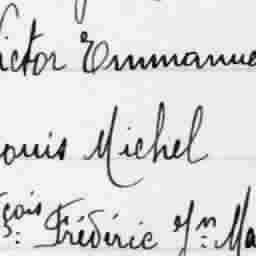 ictor Emmanue
ouis Michel
çois Frédéric Jn Ma